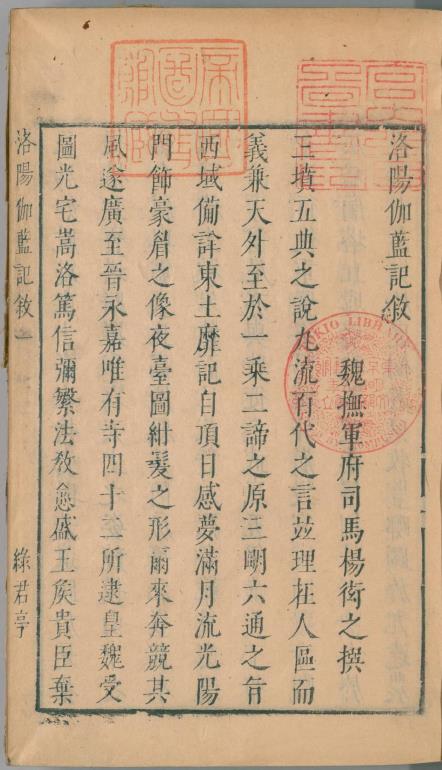 洛陽伽藍記敘
魏撫軍府司馬楊衒之撰
三墳五典之說九流百代之言並理在人區而
義兼天外至於一乘二諦之原三明六通之旨
西域備詳東土靡記自頂日感夢滿月流光陽
門飾豪眉之像夜臺圖紺髮之形爾來奔競其
風遂廣至晉永嘉唯有寺四十二所逮皇魏受
圖光宅嵩洛篤信彌繁法教愈盛王矦貴臣棄
洛陽伽藍記敘 一 綠君亭
TOKIO LIBRARY